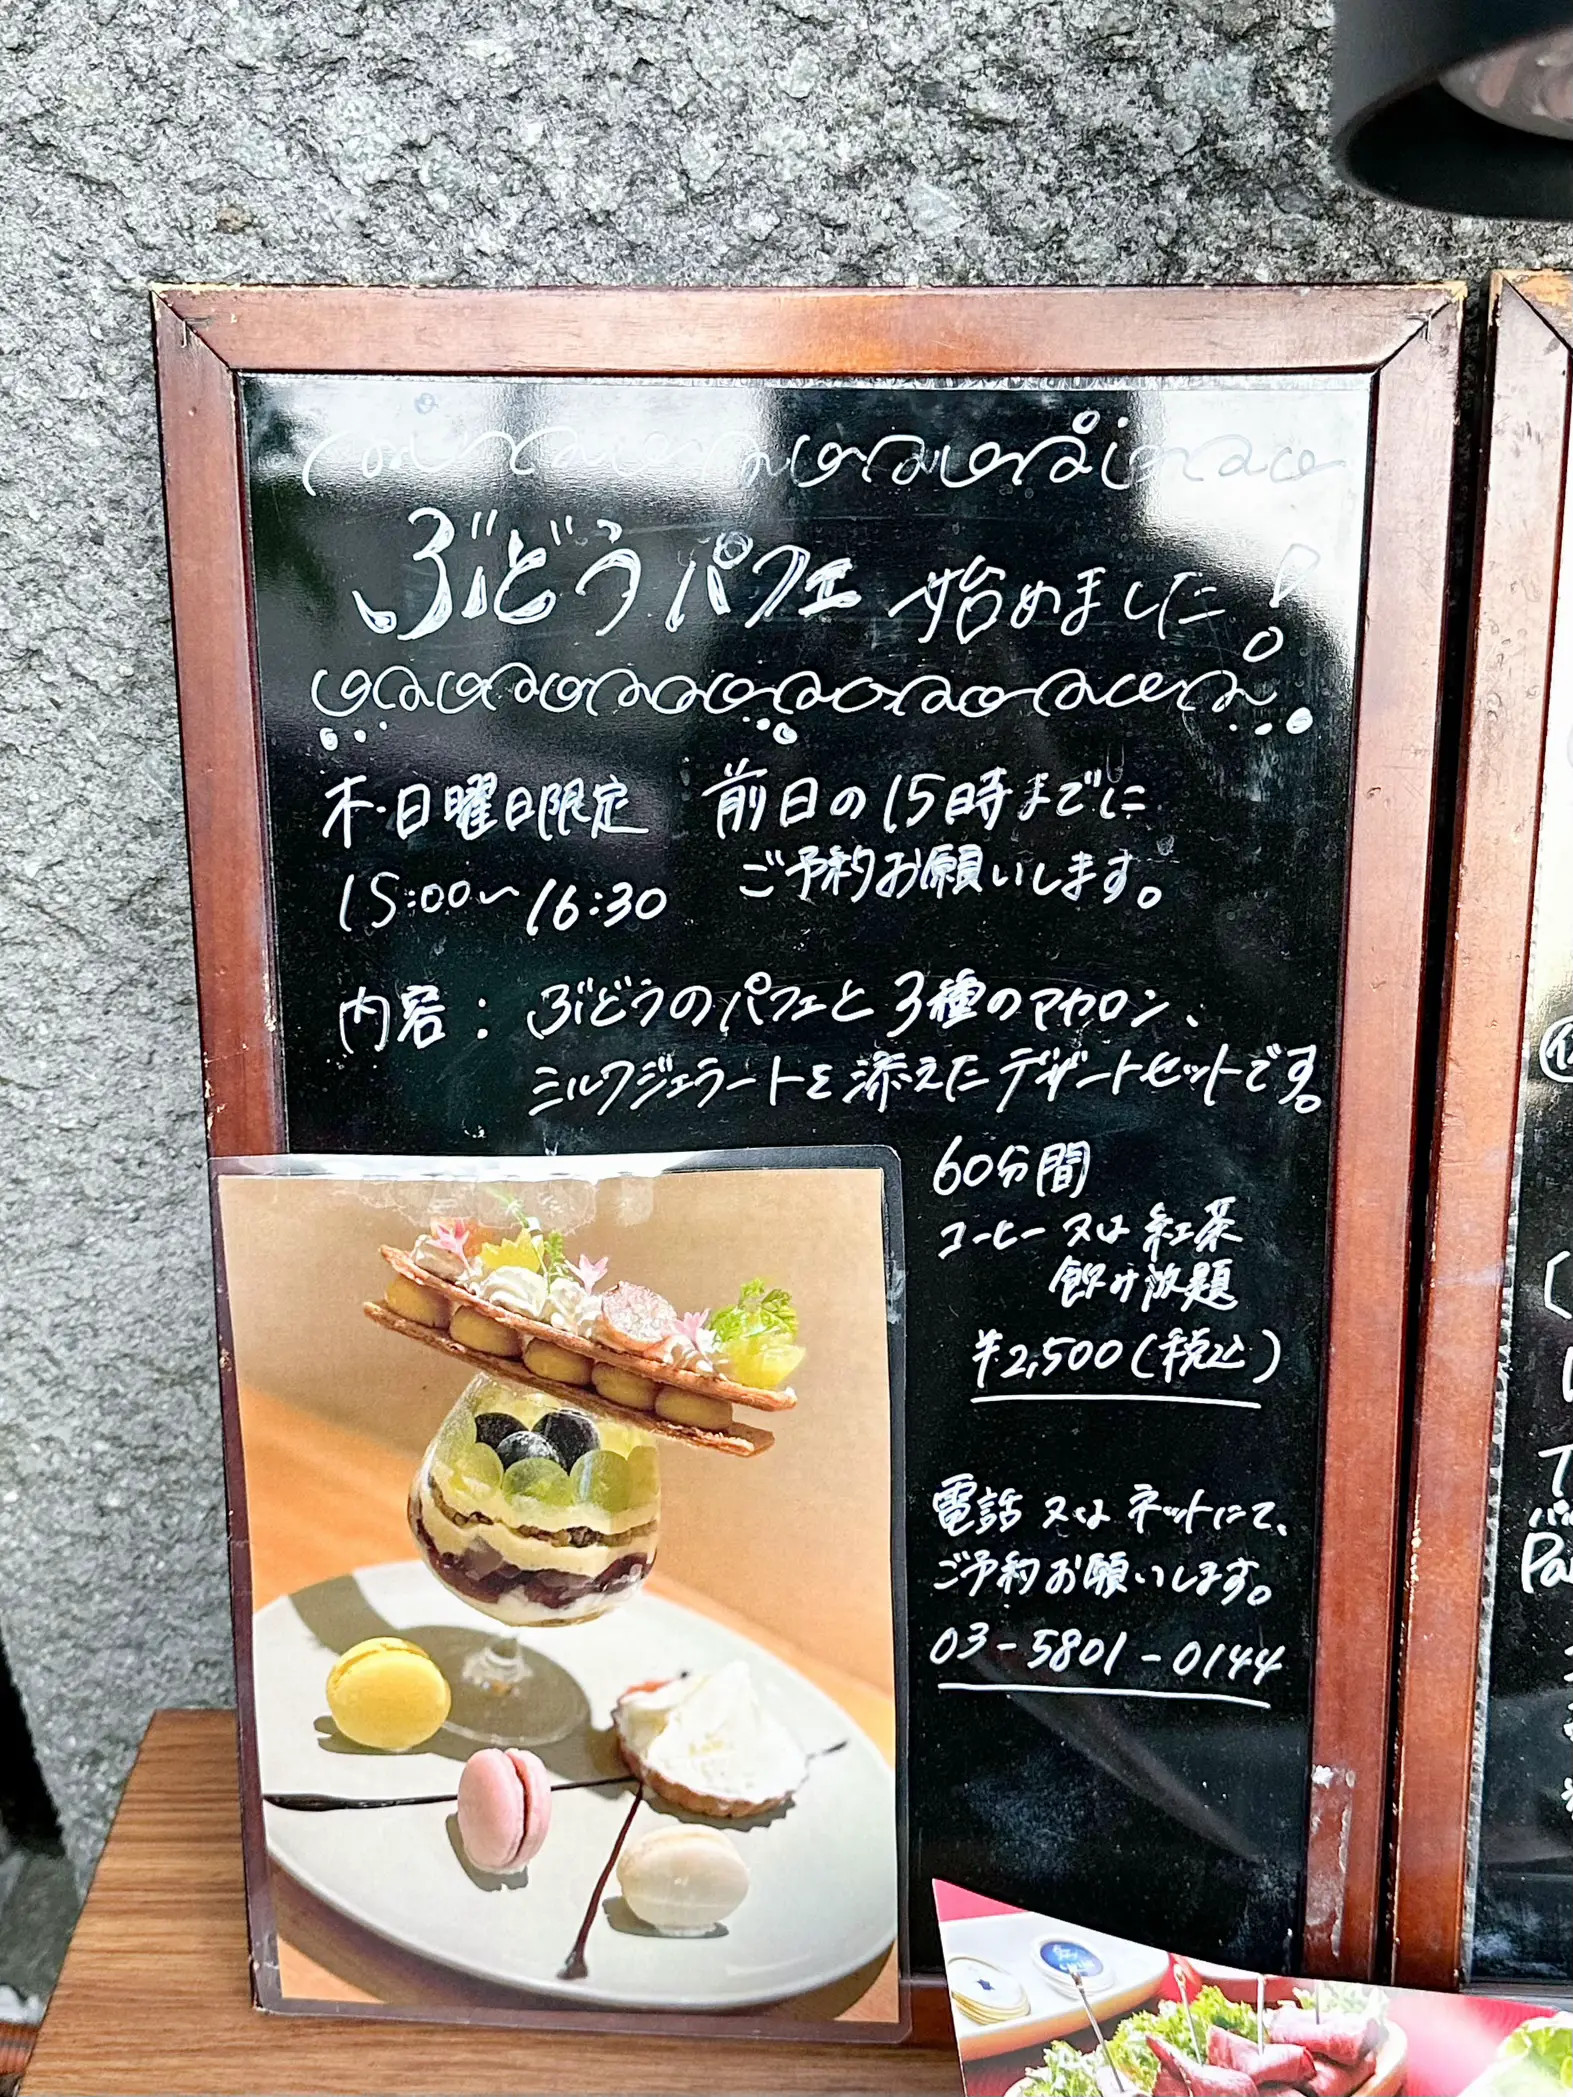 ぶどうパフェ始めました!
木・日曜日限定
15:00〜16:30
前日の15時までに
ご予約お願いします。
内容:ぶどうのパフェと3種のマカロン、
ミルクジェラートを添えたデザートセットです。
60分間
コーヒー又は紅茶
飲み放題
¥2,500(税込)
電話又はネットにて、
ご予約お願いします。
03-5801-0144